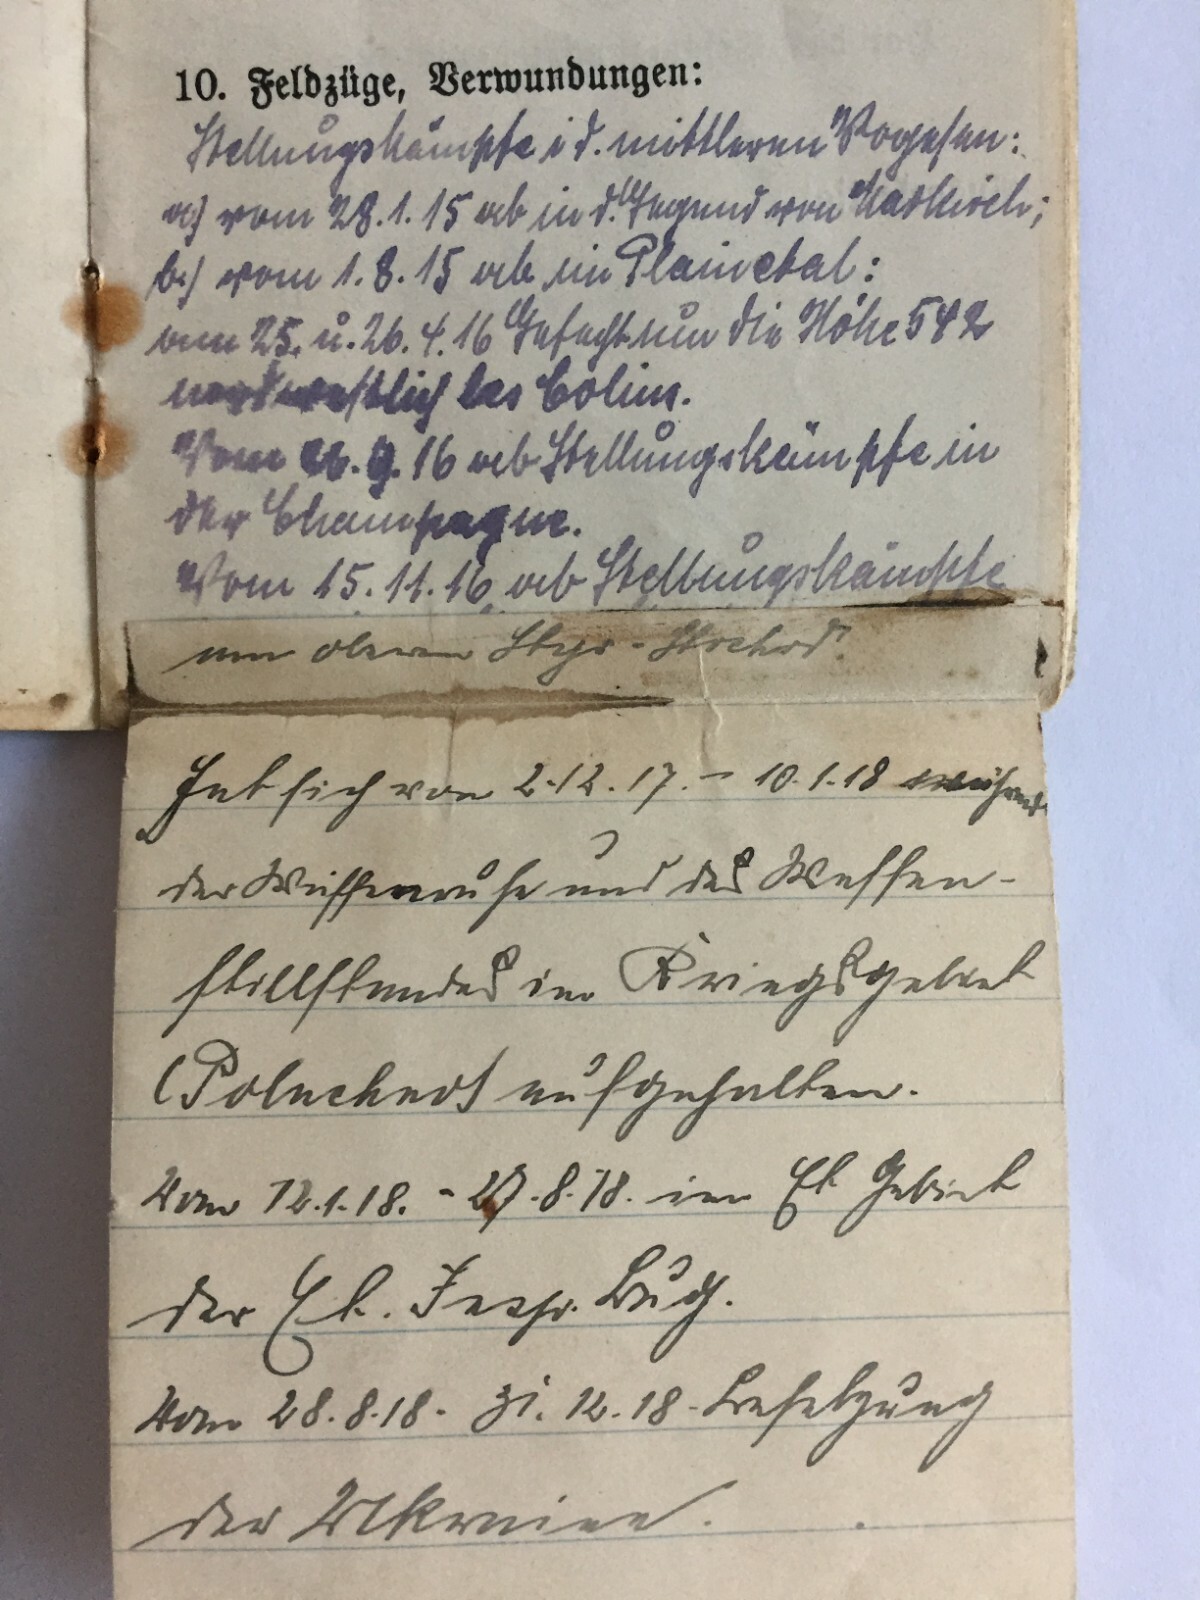 10. Feldzüge, Verwundungen:
Stellungskämpfe i d. mittleren Vogesen:
a) vom 28.1.15 ab in d. Gegend von Markirch;
b.) vom 1.8.15 ab im Plainetal:
am 25. u. 26.4.16 Gefecht um die Höhe 542
nordwestlich les Colins.
Vom 9.16 ab Stellungskämpfe in
der Champagne.
Vom 15.11.16 ab Stellungskämpfe
am oberen Styr-Stochod.
Hat sich vom 2.12.17. - 10.1.18 während
der Waffenruhe und des Waffen-
stillstandes im Kriegsgebiet
aufgehalten.
Vom 12.1.18. - 27.8.18. im Et. Gebiet
der Et. Insp. Bug.
Vom 28.8.18 - 31.12.18 - Besetzung
der Ukraine.